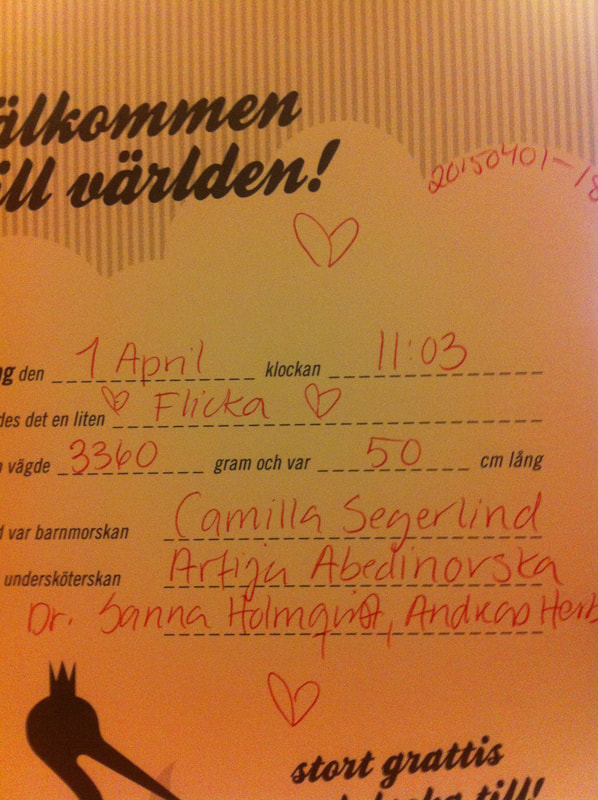 älkommen
ill världen!
20150401-18
ng den 1 April klockan 11:03
des det en liten Flicka
vägde 3360 gram och var 50 cm lång
d var barnmorskan Camilla Segerlind
undersköterskan Artija Abedinovska
Dr. Sanna Holmqvist, Andreas Herb
stort grattis
till!